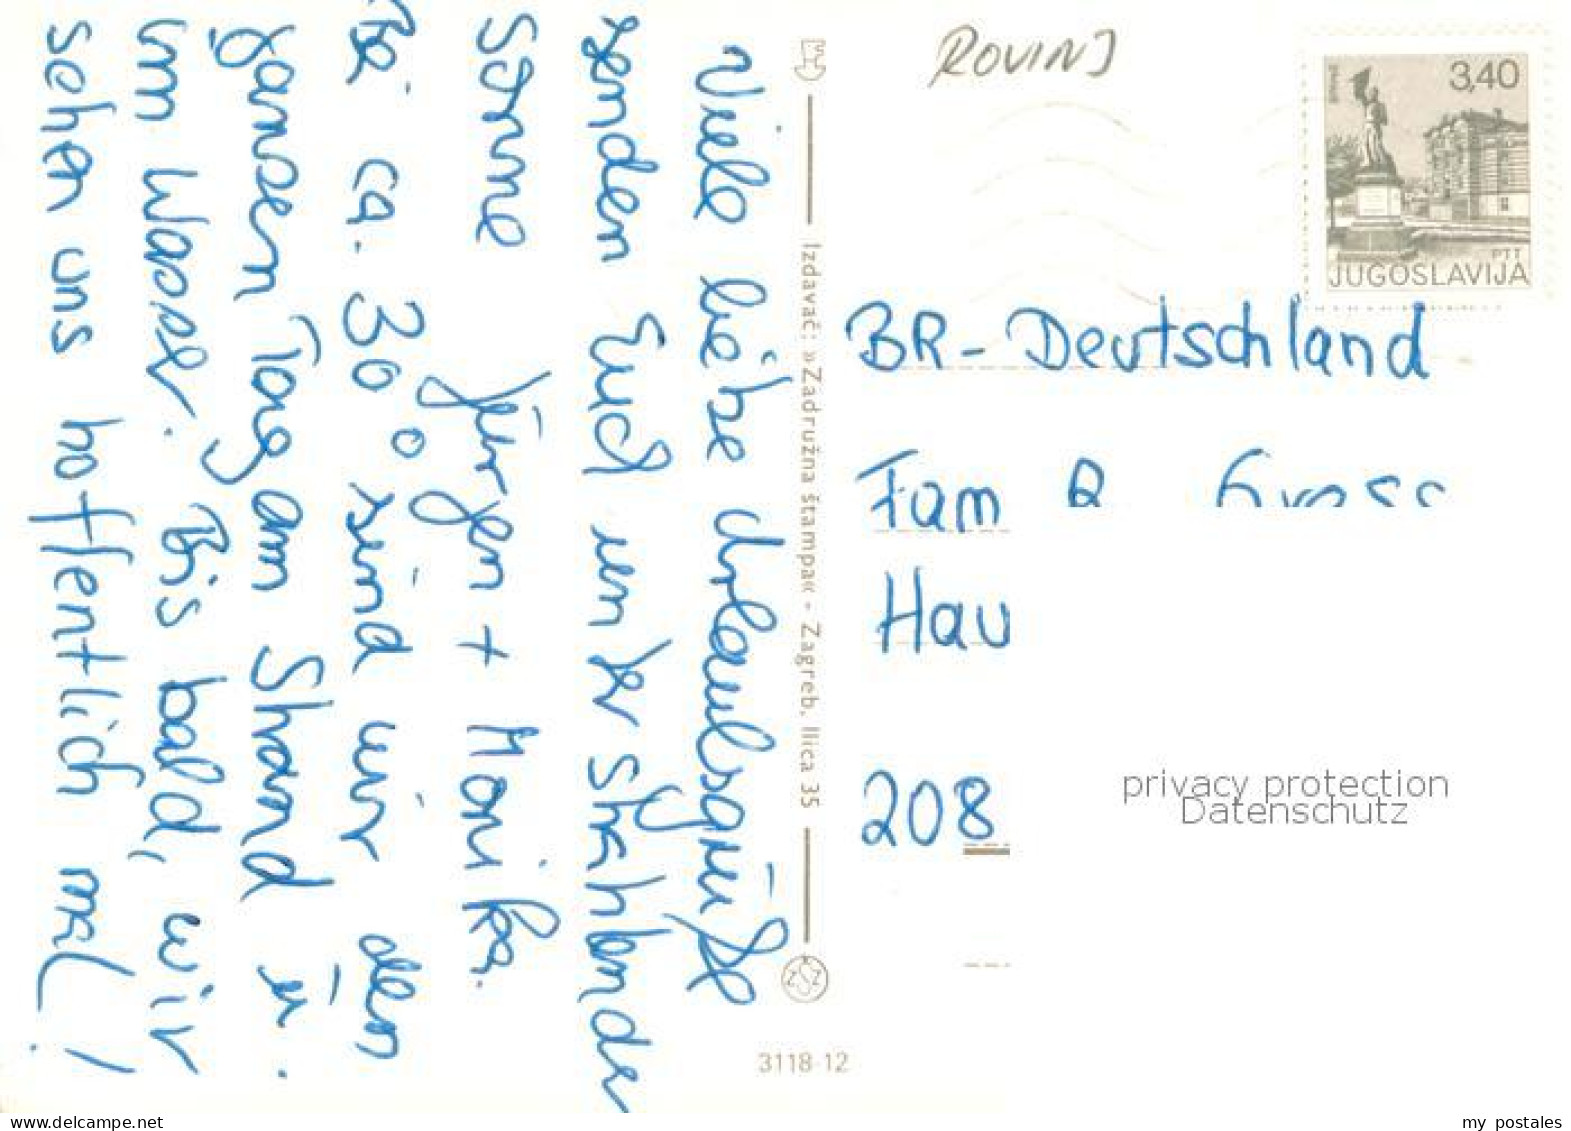 Viele liebe Urlaubsgrüße
senden Euch in der strahlenden
Sonne
Jürgen + Monika.
Bei ca. 30° sind wir den
ganzen Tag am Strand u.
im Wasser. Bis bald, wir
sehen uns hoffentlich mal!
Izdavač: »Zadružna štampa« - Zagreb, Ilica 35
3118-12
ROVINJ
3,40
PTT
JUGOSLAVIJA
BR-Deutschland
Fam
Hau
208
privacy protection
Datenschutz
delcampe.net
my_postales